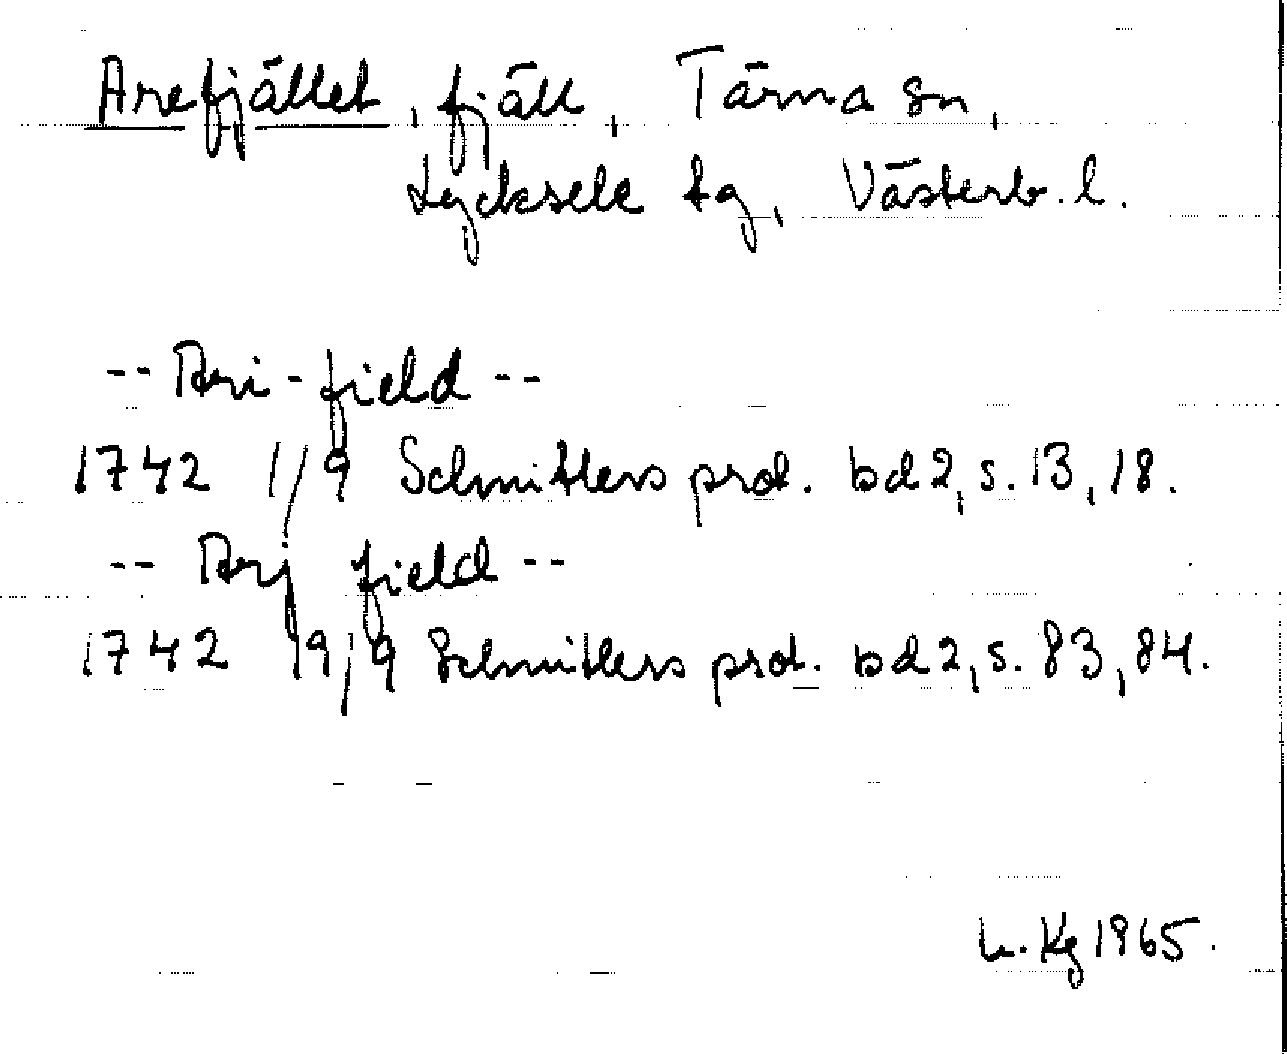 Arefjället, fjäll, Tärna sn,
Lycksele tg, Västerb. l.
-- Ari-field --
1742 1/9 Schnitlers prot. bd 2, s. 13, 18.
-- Arj field --
1742 19/9 Schnitlers prot. bd 2, s. 83, 84.
Kg 1965.